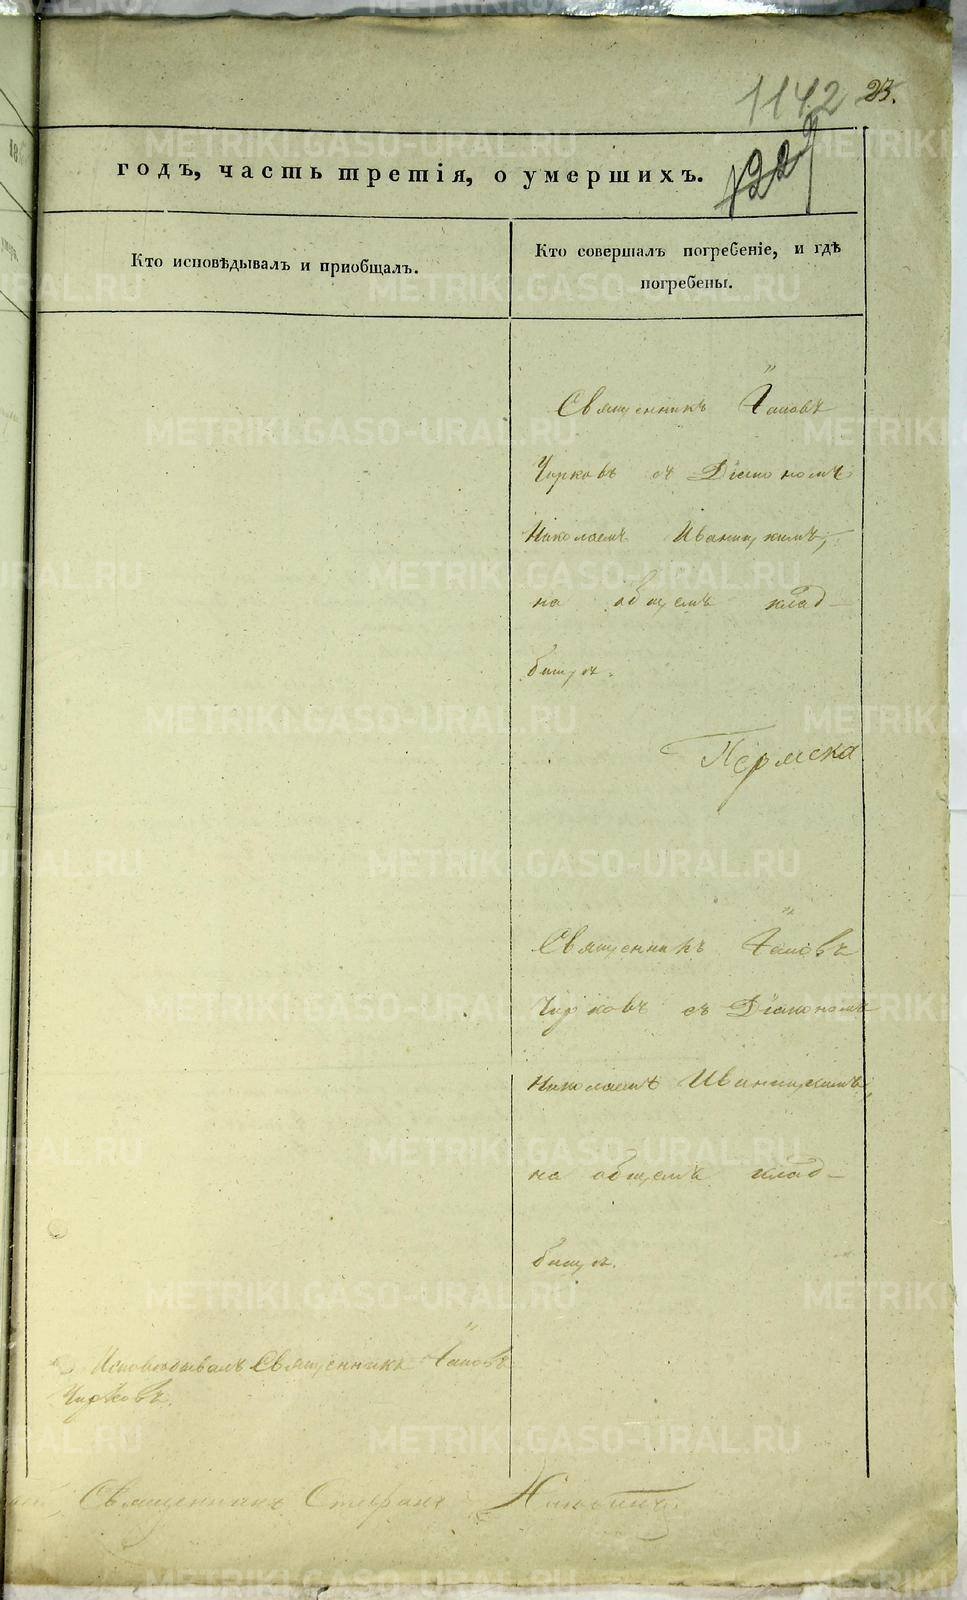 1142 23.
годъ, часть третія, о умершихъ.
Кто исповѣдывалъ и пріобщалъ.
Кто совершалъ погребеніе, и гдѣ
погребены.
Священникъ Іаковъ
Чирковъ съ Діакономъ
Николаемъ Иваницкимъ,
на общемъ клад-
бищѣ.
Пермска
Священникъ Іаковъ
Чирковъ съ Діакономъ
Николаемъ Иваницкимъ,
на общемъ клад-
бищѣ.
Исповѣдывалъ Священникъ Іаковъ
Чирковъ.
Священникъ Стефанъ
METRIKI.GASO-URAL.RU